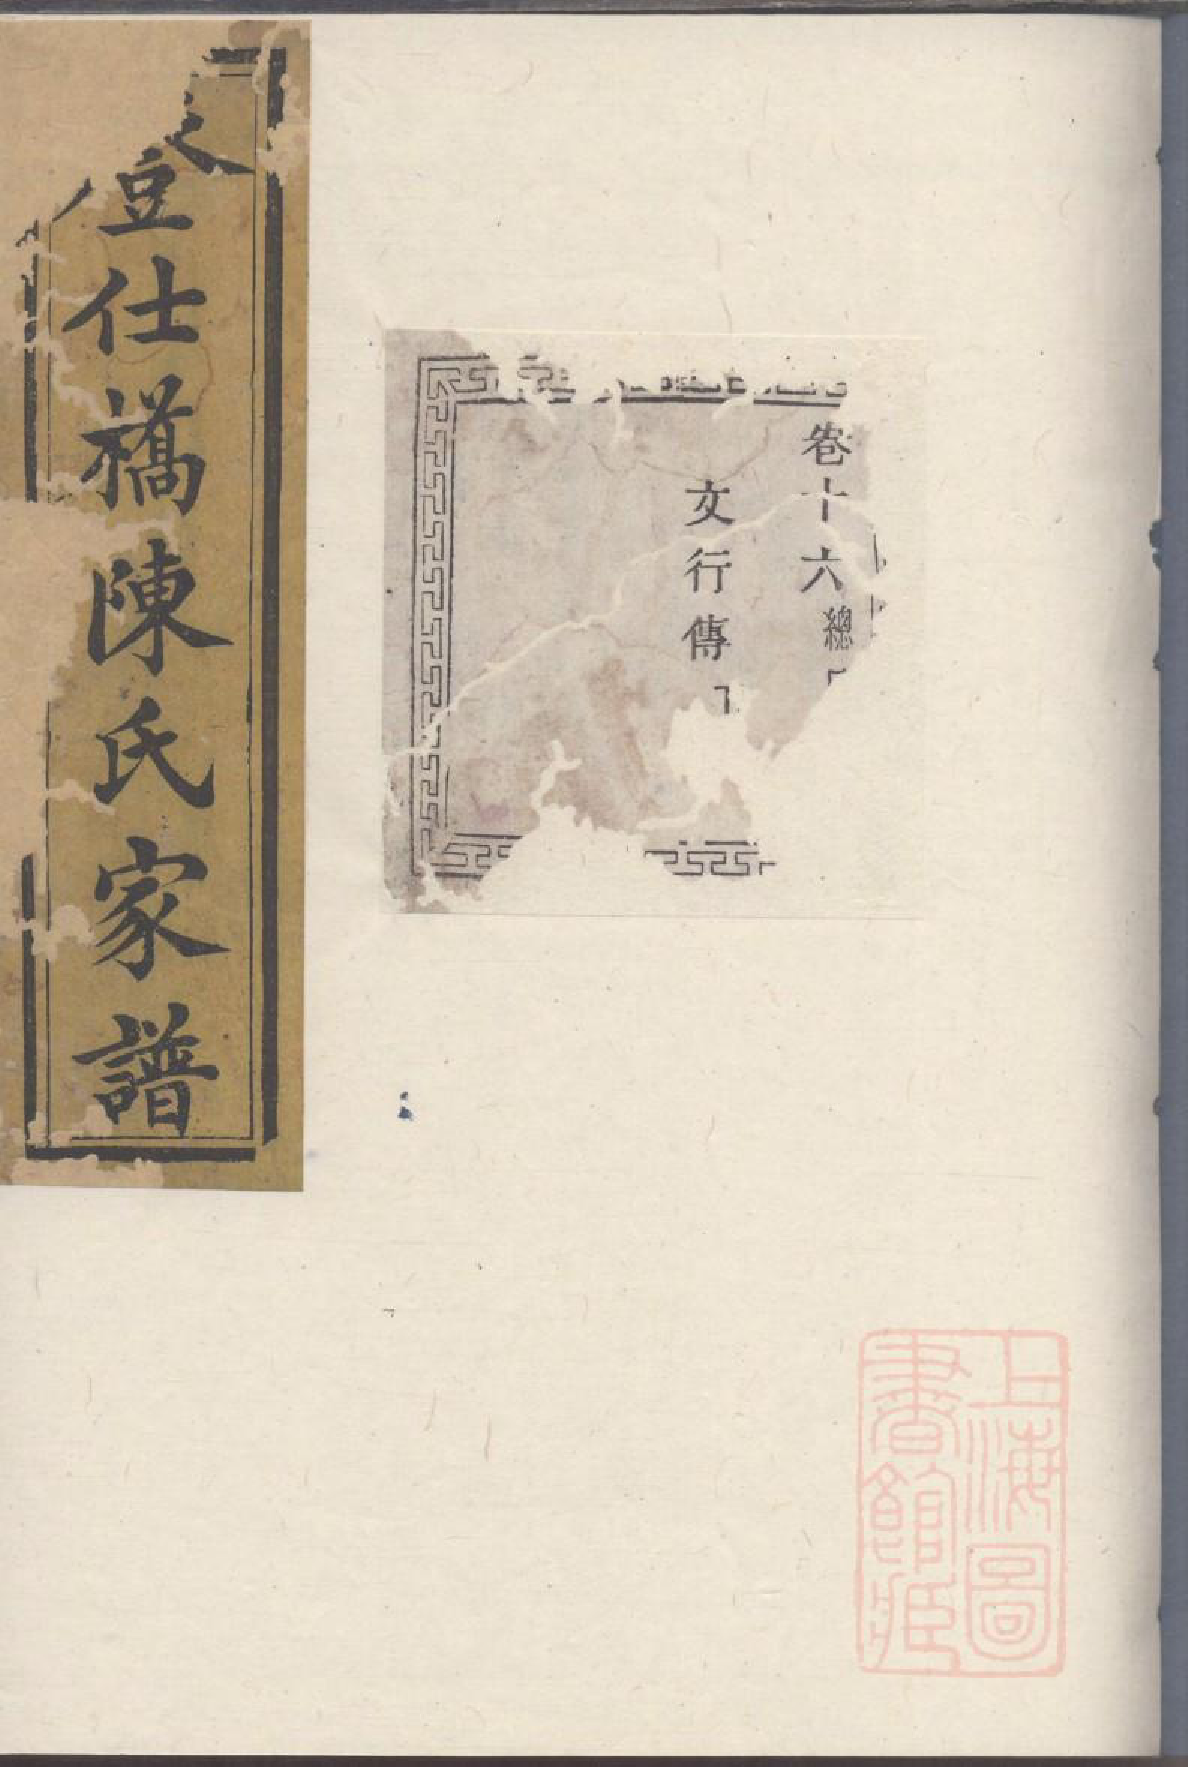 登仕橋陳氏家譜
卷十六總
文行傳
上海圖
書館藏